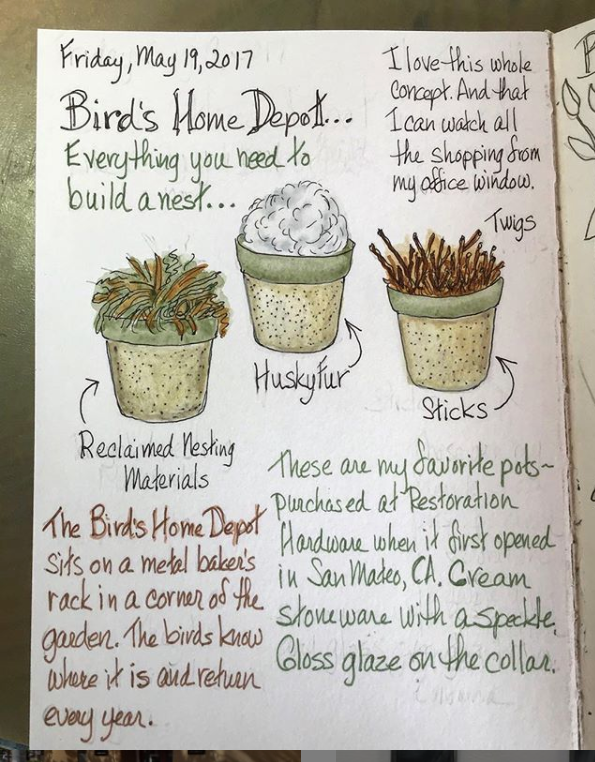 Friday, May 19, 2017
Bird's Home Depot...
Everything you need to
build a nest...
I love this whole
concept. And that
I can watch all
the shopping from
my office window.
Twigs
Husky Fur
Sticks
Reclaimed Nesting
Materials
The Bird's Home Depot
sits on a metal baker's
rack in a corner of the
garden. The birds know
where it is and return
every year.
These are my favorite pots~
purchased at Restoration
Hardware when it first opened
in San Mateo, CA. Cream
stoneware with a speckle.
Gloss glaze on the collar.